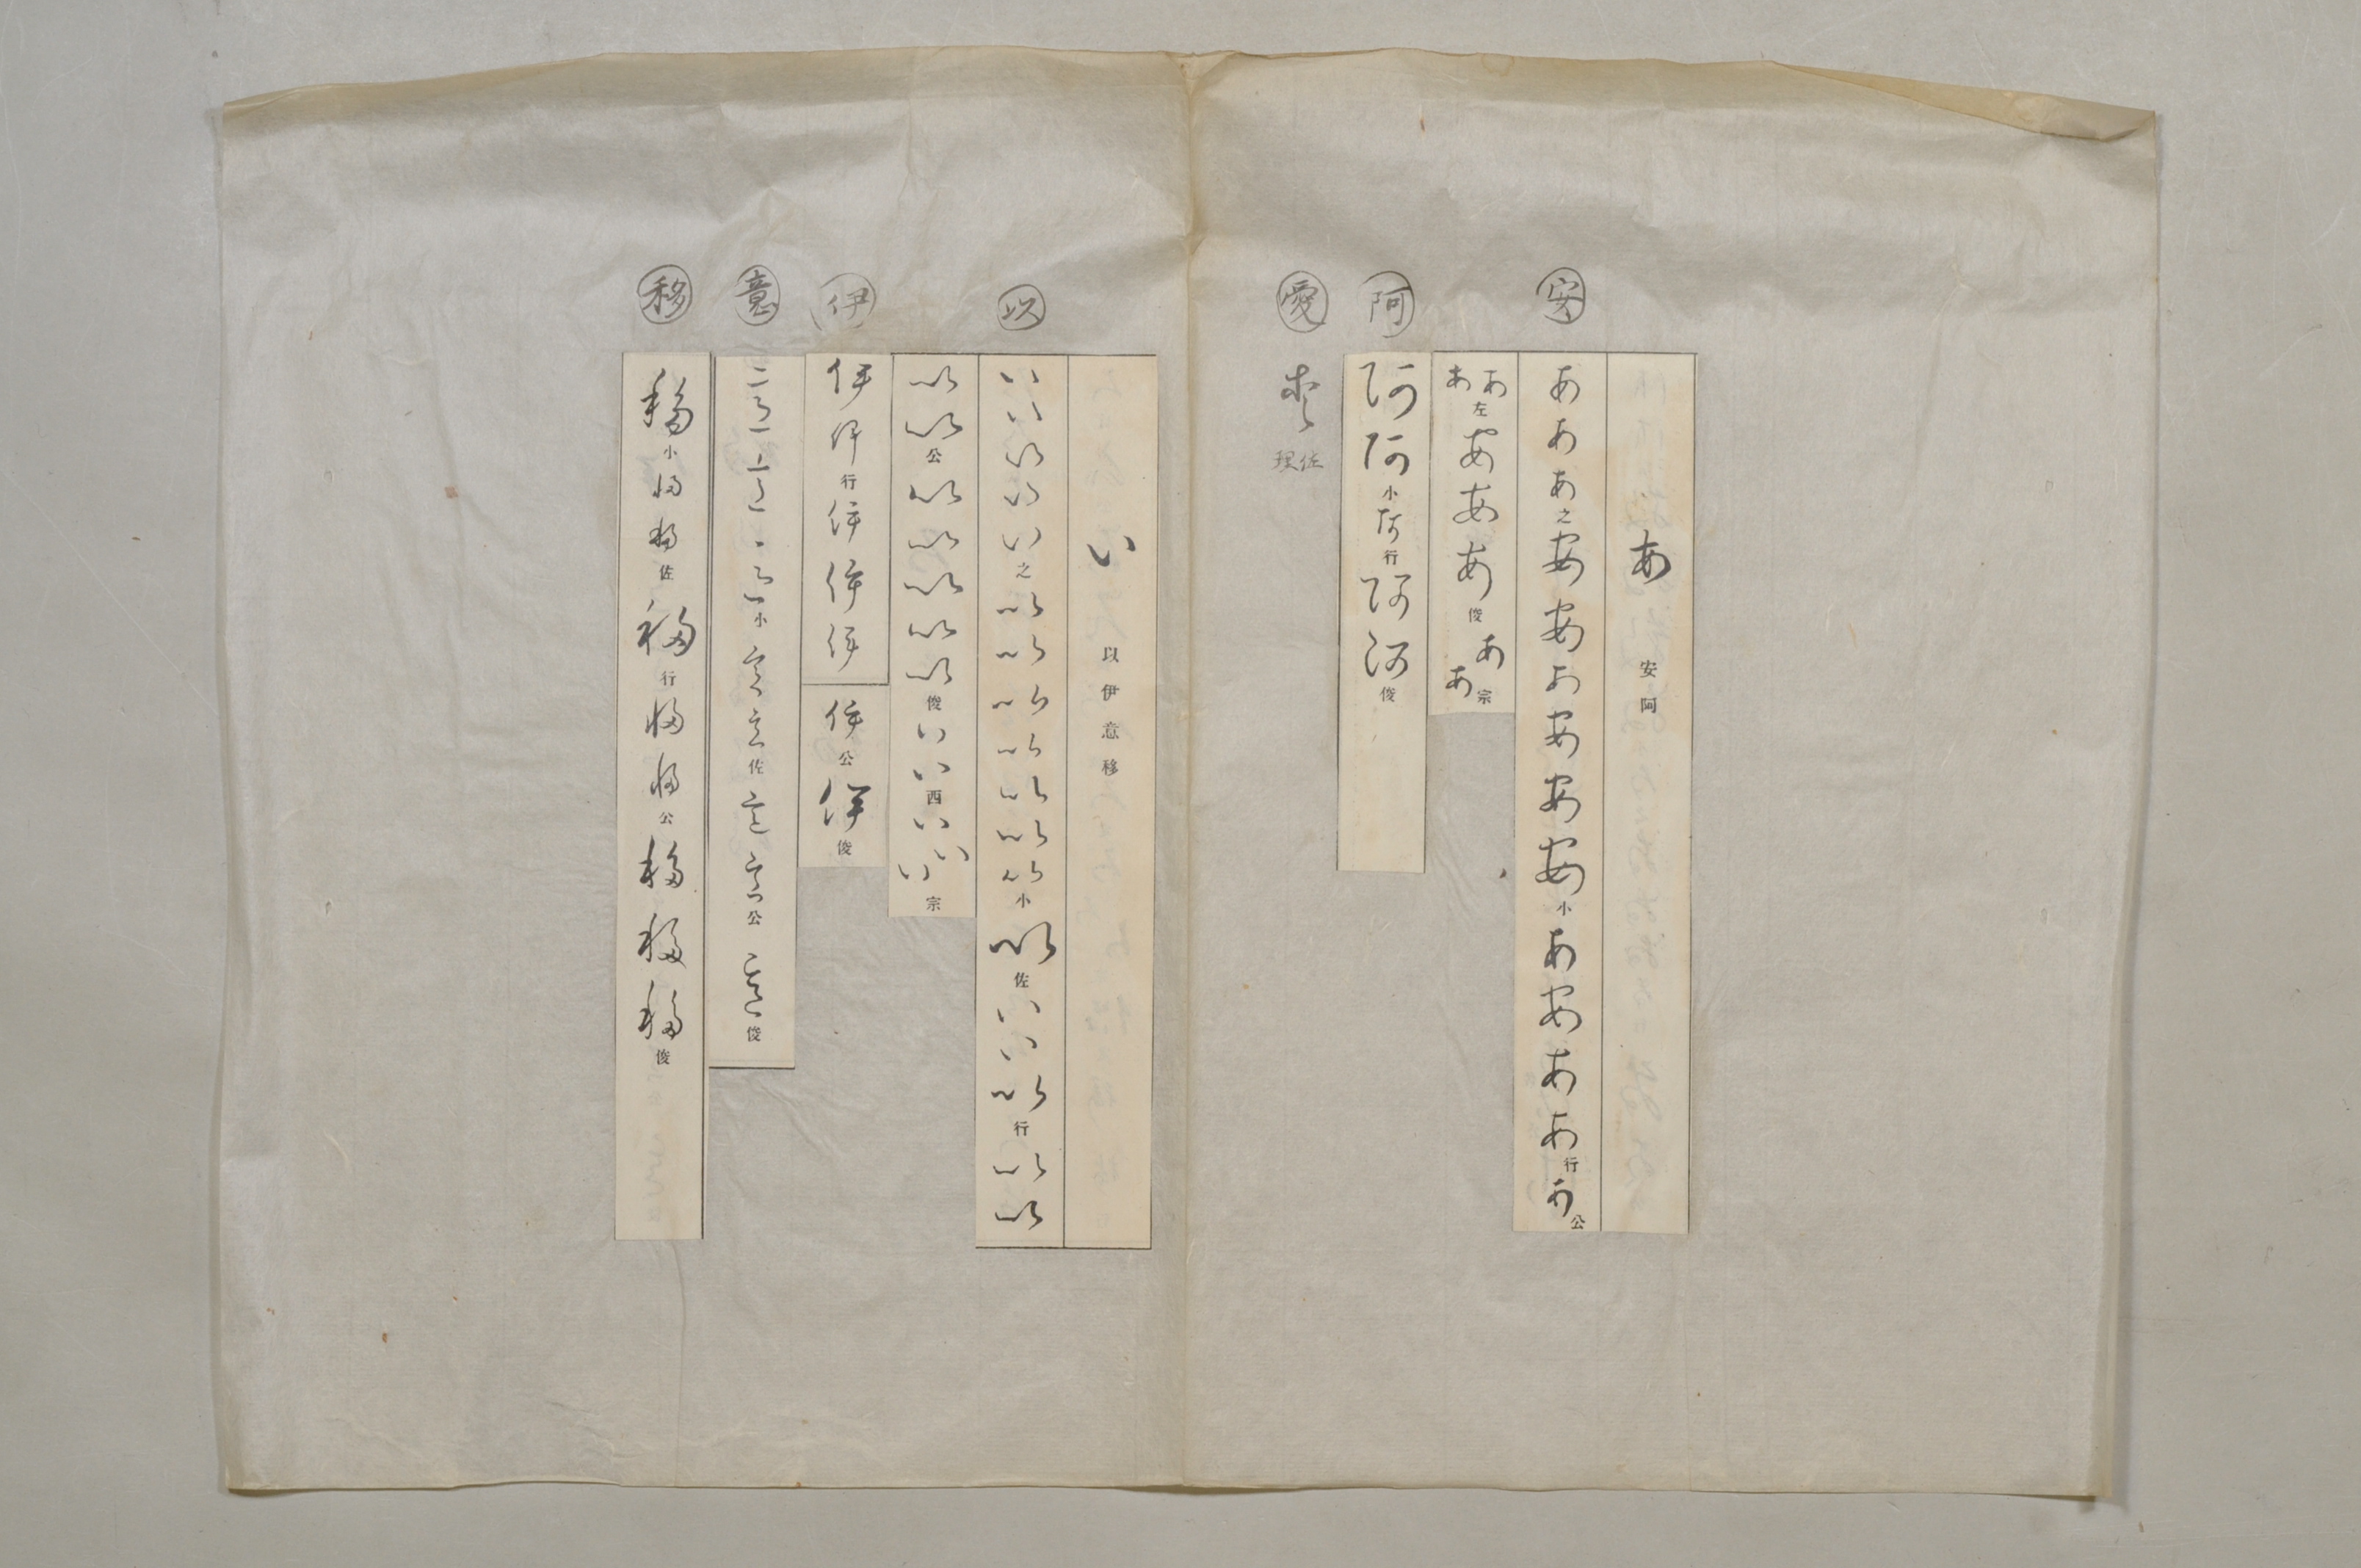 あ 安阿
安
あああ之あああああああ小ああああ行あ公
ああ左あああ俊ああ宗
阿
阿阿小阿行阿阿俊
愛
愛 佐理
い 以伊意移
以
いいいいい之以以以以以以以小以佐いい以行以以
以以公以以以以以俊いい西いいい宗
伊
伊伊行伊伊伊
伊公伊俊
意
意意意小意意佐意意公意俊
移
移小移移佐移行移移公移移移俊